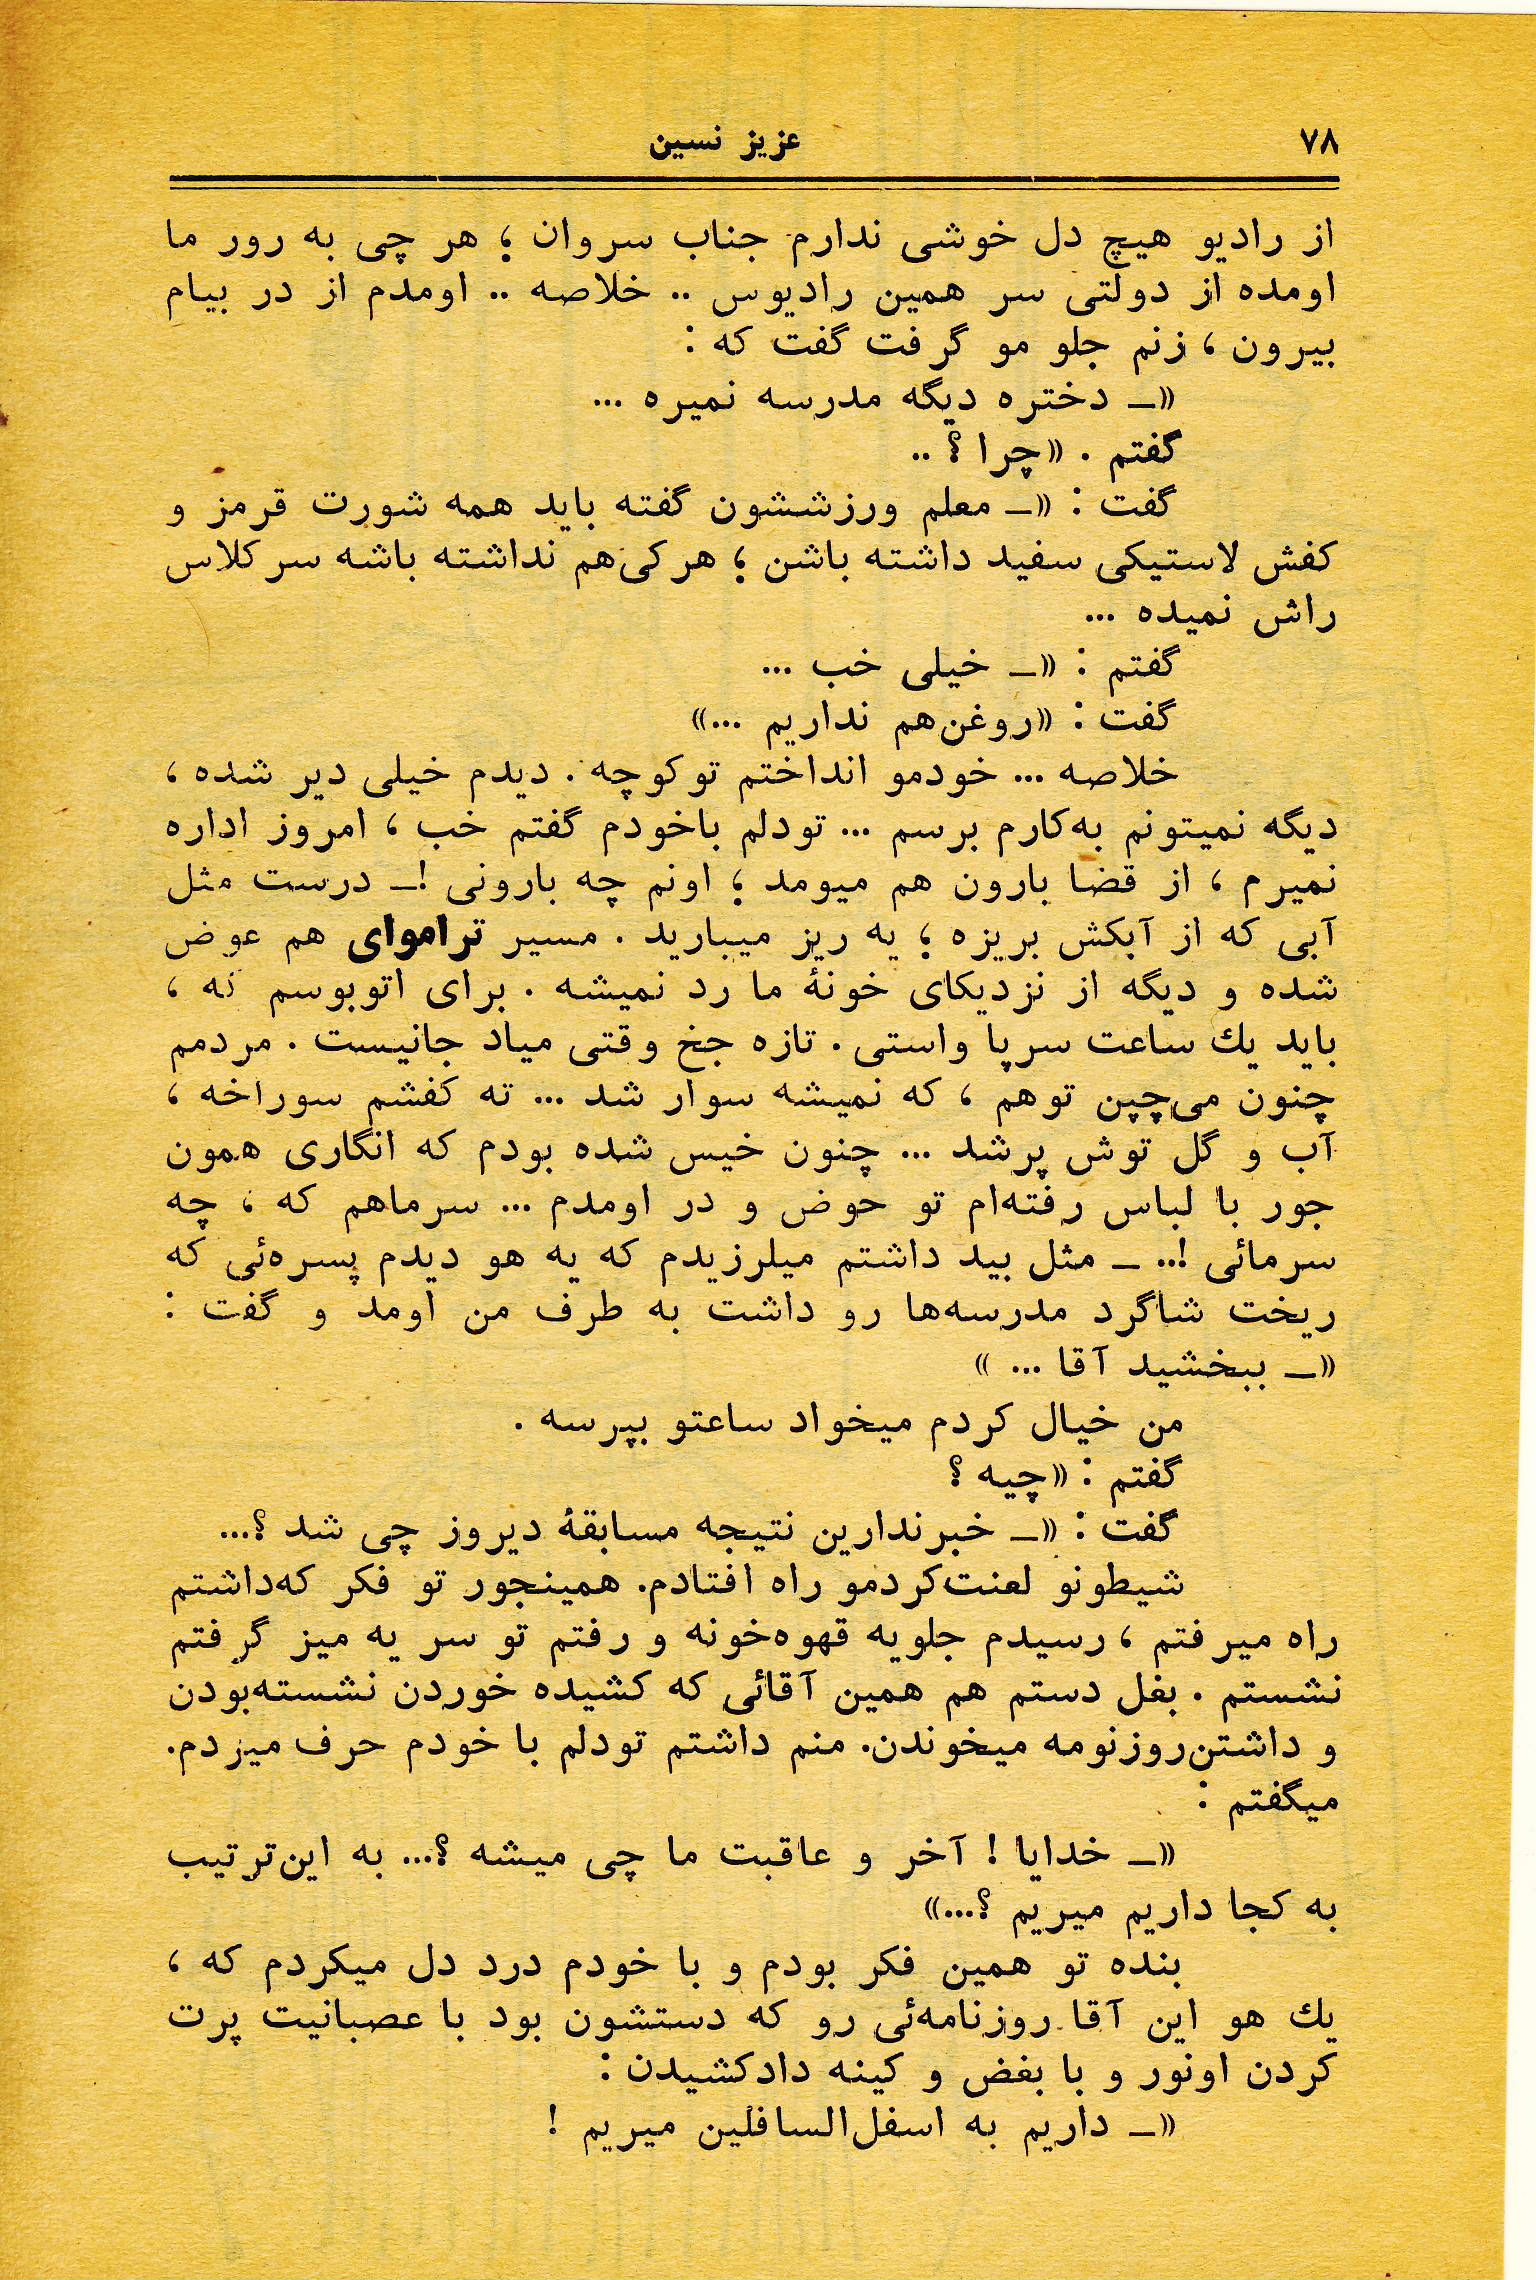 ۷۸
عزیز نسین
از رادیو هیچ دل خوشی ندارم جناب سروان ؛ هر چی به رور ما
اومده از دولتی سر همین رادیوس .. خلاصه .. اومدم از در بیام
بیرون ، زنم جلو مو گرفت گفت که :
«ـ دختره دیگه مدرسه نمیره ...
گفتم . «چرا ؟ ..
گفت : «ـ معلم ورزششون گفته باید همه شورت قرمز و
کفش لاستیکی سفید داشته باشن ؛ هرکی‌هم نداشته باشه سرکلاس
راش نمیده ...
گفتم : «ـ خیلی خب ...
گفت : «روغن‌هم نداریم ...»
خلاصه ... خودمو انداختم توکوچه . دیدم خیلی دیر شده ،
دیگه نمیتونم به‌کارم برسم ... تودلم باخودم گفتم خب ، امروز اداره
نمیرم ، از قضا بارون هم میومد ؛ اونم چه بارونی !ـ درست مثل
آبی که از آبکش بریزه ؛ یه ریز میبارید . مسیر تراموای هم عوض
شده و دیگه از نزدیکای خونهٔ ما رد نمیشه . برای اتوبوسم نه ،
باید یك ساعت سرپا واستی . تازه جخ وقتی میاد جانیست . مردمم
چنون می‌چپن توهم ، که نمیشه سوار شد ... ته کفشم سوراخه ،
آب و گل توش پرشد ... چنون خیس شده بودم که انگاری همون
جور با لباس رفته‌ام تو حوض و در اومدم ... سرماهم که ، چه
سرمائی !.. ـ مثل بید داشتم میلرزیدم که یه هو دیدم پسره‌ئی که
ریخت شاگرد مدرسه‌ها رو داشت به طرف من اومد و گفت :
«ـ ببخشید آقا ... »
من خیال کردم میخواد ساعتو بپرسه .
گفتم : «چیه ؟
گفت : «ـ خبرندارین نتیجه مسابقهٔ دیروز چی شد ؟...
شیطونو لعنت‌کردمو راه افتادم. همینجور تو فکر که‌داشتم
راه میرفتم ، رسیدم جلویه قهوه‌خونه و رفتم تو سر یه میز گرفتم
نشستم . بغل دستم هم همین آقائی که کشیده خوردن نشسته‌بودن
و داشتن‌روزنومه میخوندن. منم داشتم تودلم با خودم حرف میزدم.
میگفتم :
«ـ خدایا ! آخر و عاقبت ما چی میشه ؟... به این‌ترتیب
به کجا داریم میریم ؟...»
بنده تو همین فکر بودم و با خودم درد دل میکردم که ،
یك هو این آقا روزنامه‌ئی رو که دستشون بود با عصبانیت پرت
کردن اونور و با بغض و کینه دادکشیدن :
«ـ داریم به اسفل‌السافلین میریم !